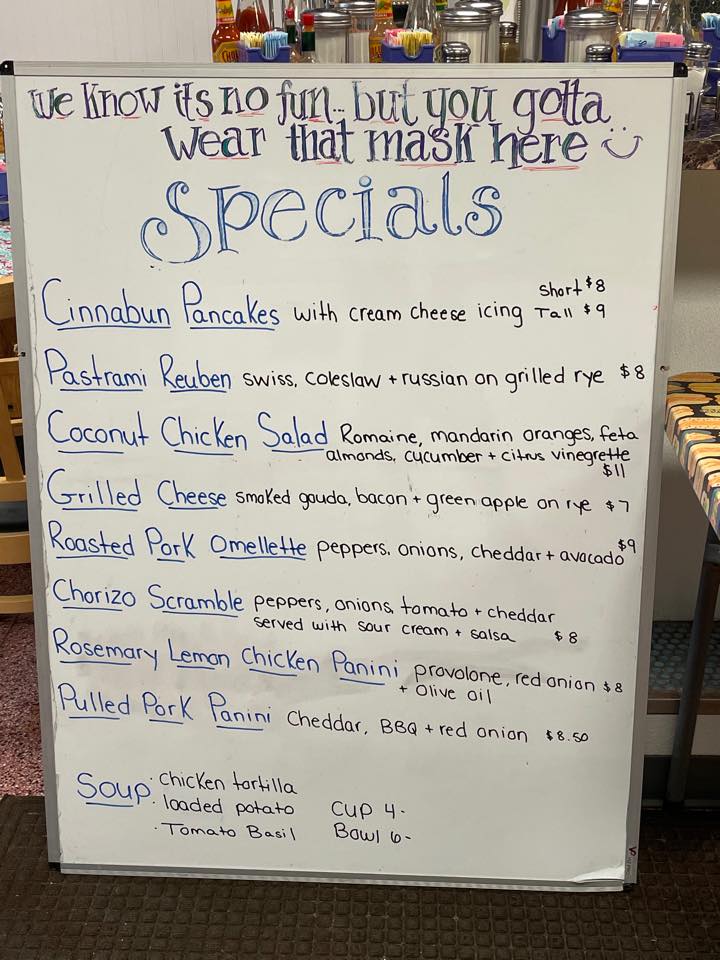 we know its no fun... but you gotta
wear that mask here
Specials
Cinnabun Pancakes with cream cheese icing Short $8
Tall $9
Pastrami Reuben swiss, coleslaw + russian on grilled rye $8
Coconut Chicken Salad Romaine, mandarin oranges, feta
almonds, cucumber + citrus vinegrette
$11
Grilled Cheese smoked gouda, bacon + green apple on rye $7
Roasted Pork Omellette peppers, onions, cheddar + avocado $9
Chorizo Scramble peppers, onions, tomato + cheddar
served with sour cream + salsa $8
Rosemary Lemon Chicken Panini provolone, red onion $8
+ olive oil
Pulled Pork Panini Cheddar, BBQ + red onion $8.50
Soup · chicken tortilla
· loaded potato Cup 4-
· Tomato Basil Bowl 6-